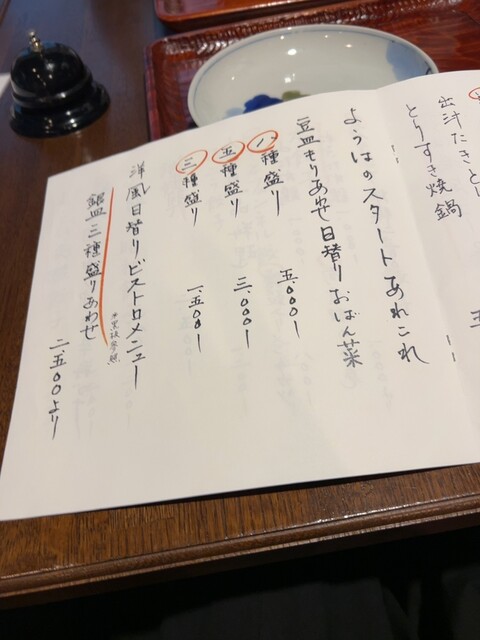 出汁たきと
とりすき焼鍋
五
ようはのスタートあれこれ
豆皿もりあわせ日替りおばん菜
八種盛り 五.〇〇〇ー
五種盛り 三.〇〇〇ー
三種盛り 一.五〇〇ー
洋風日替りビストロメニュー
※黒板参照
銀皿三種盛りあわせ
二.五〇〇よりー